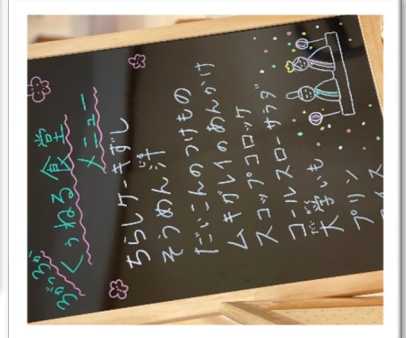 くぅねる食堂
メニュー
ちらしケーキずし
そうめん汁
だいこんのつけもの
ムキガレイのあんかけ
スコップコロッケ
コールスローサラダ
大学いも
プリン